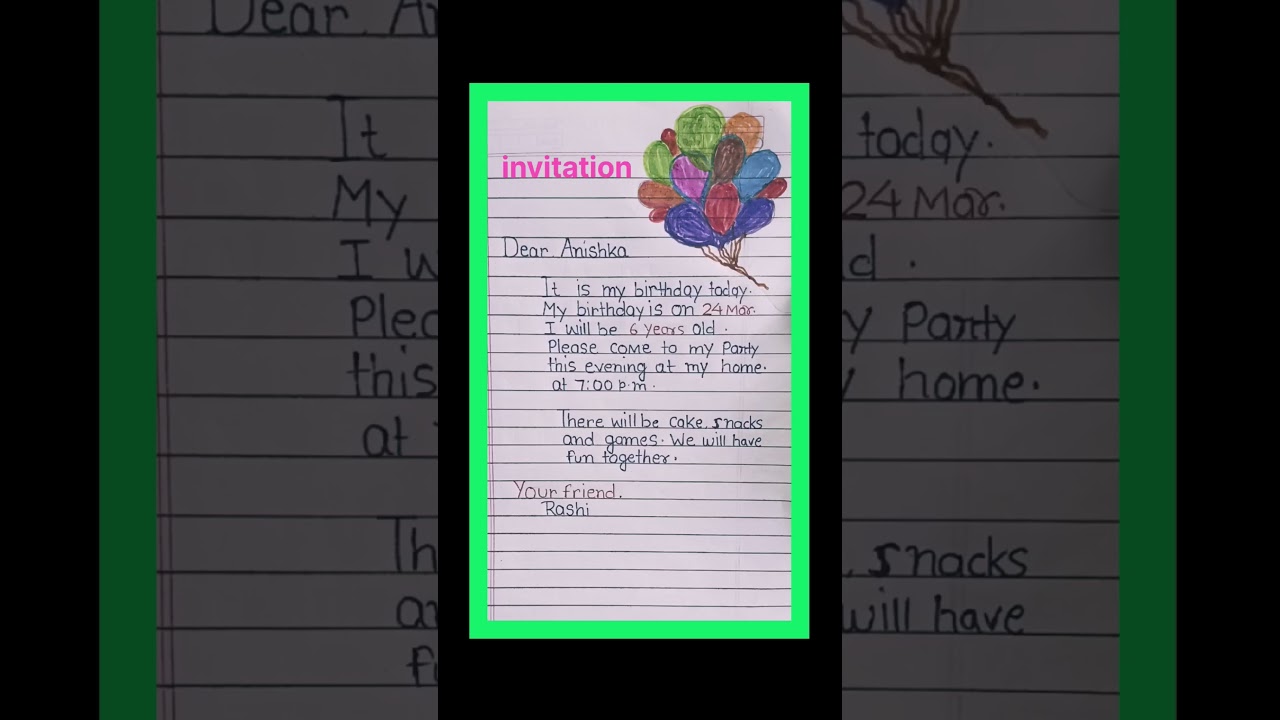 invitation
Dear Anishka
It is my birthday today.
My birthday is on 24 Mar.
I will be 6 years old.
Please come to my Party
this evening at my home.
at 7:00 p.m.
There will be cake, snacks
and games. We will have
fun together.
Your friend.
Rashi